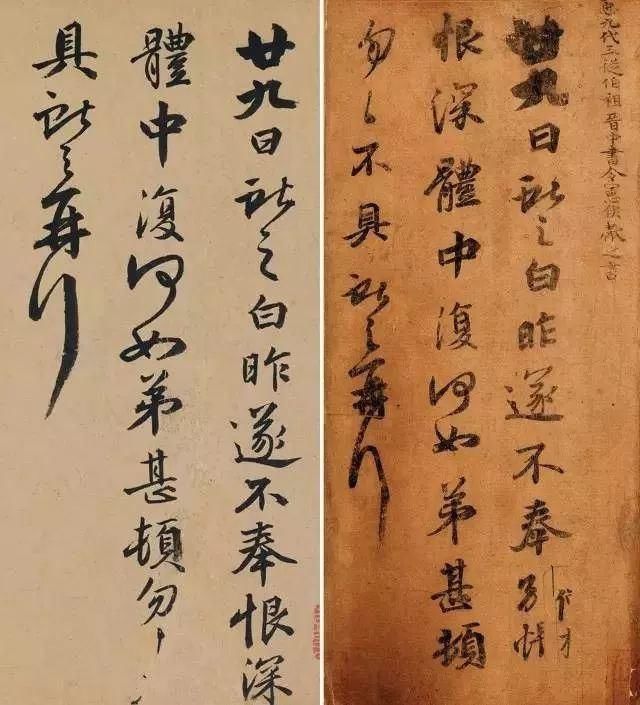 廿九日獻之白昨遂不奉恨深
體中復何如弟甚頓勿〻
具獻之再拜
臣九代三從伯祖晉中書令憲侯獻之書
廿九日獻之白昨遂不奉別悵
恨深體中復何如弟甚頓
勿〻不具獻之再拜